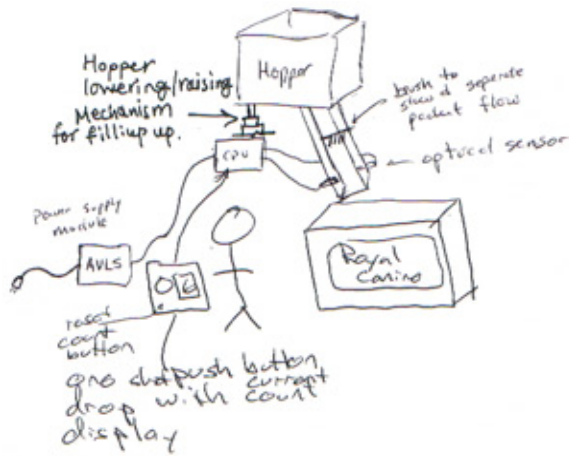 Hopper
lowering/raising
Mechanism
for filliup up.
Hopper
brush to
slow & seperate
packet flow
optical sensor
CPU
Power supply
module
AVLS
Royal
Canine
reset
count
button
one shot push button
drop with current
count
display